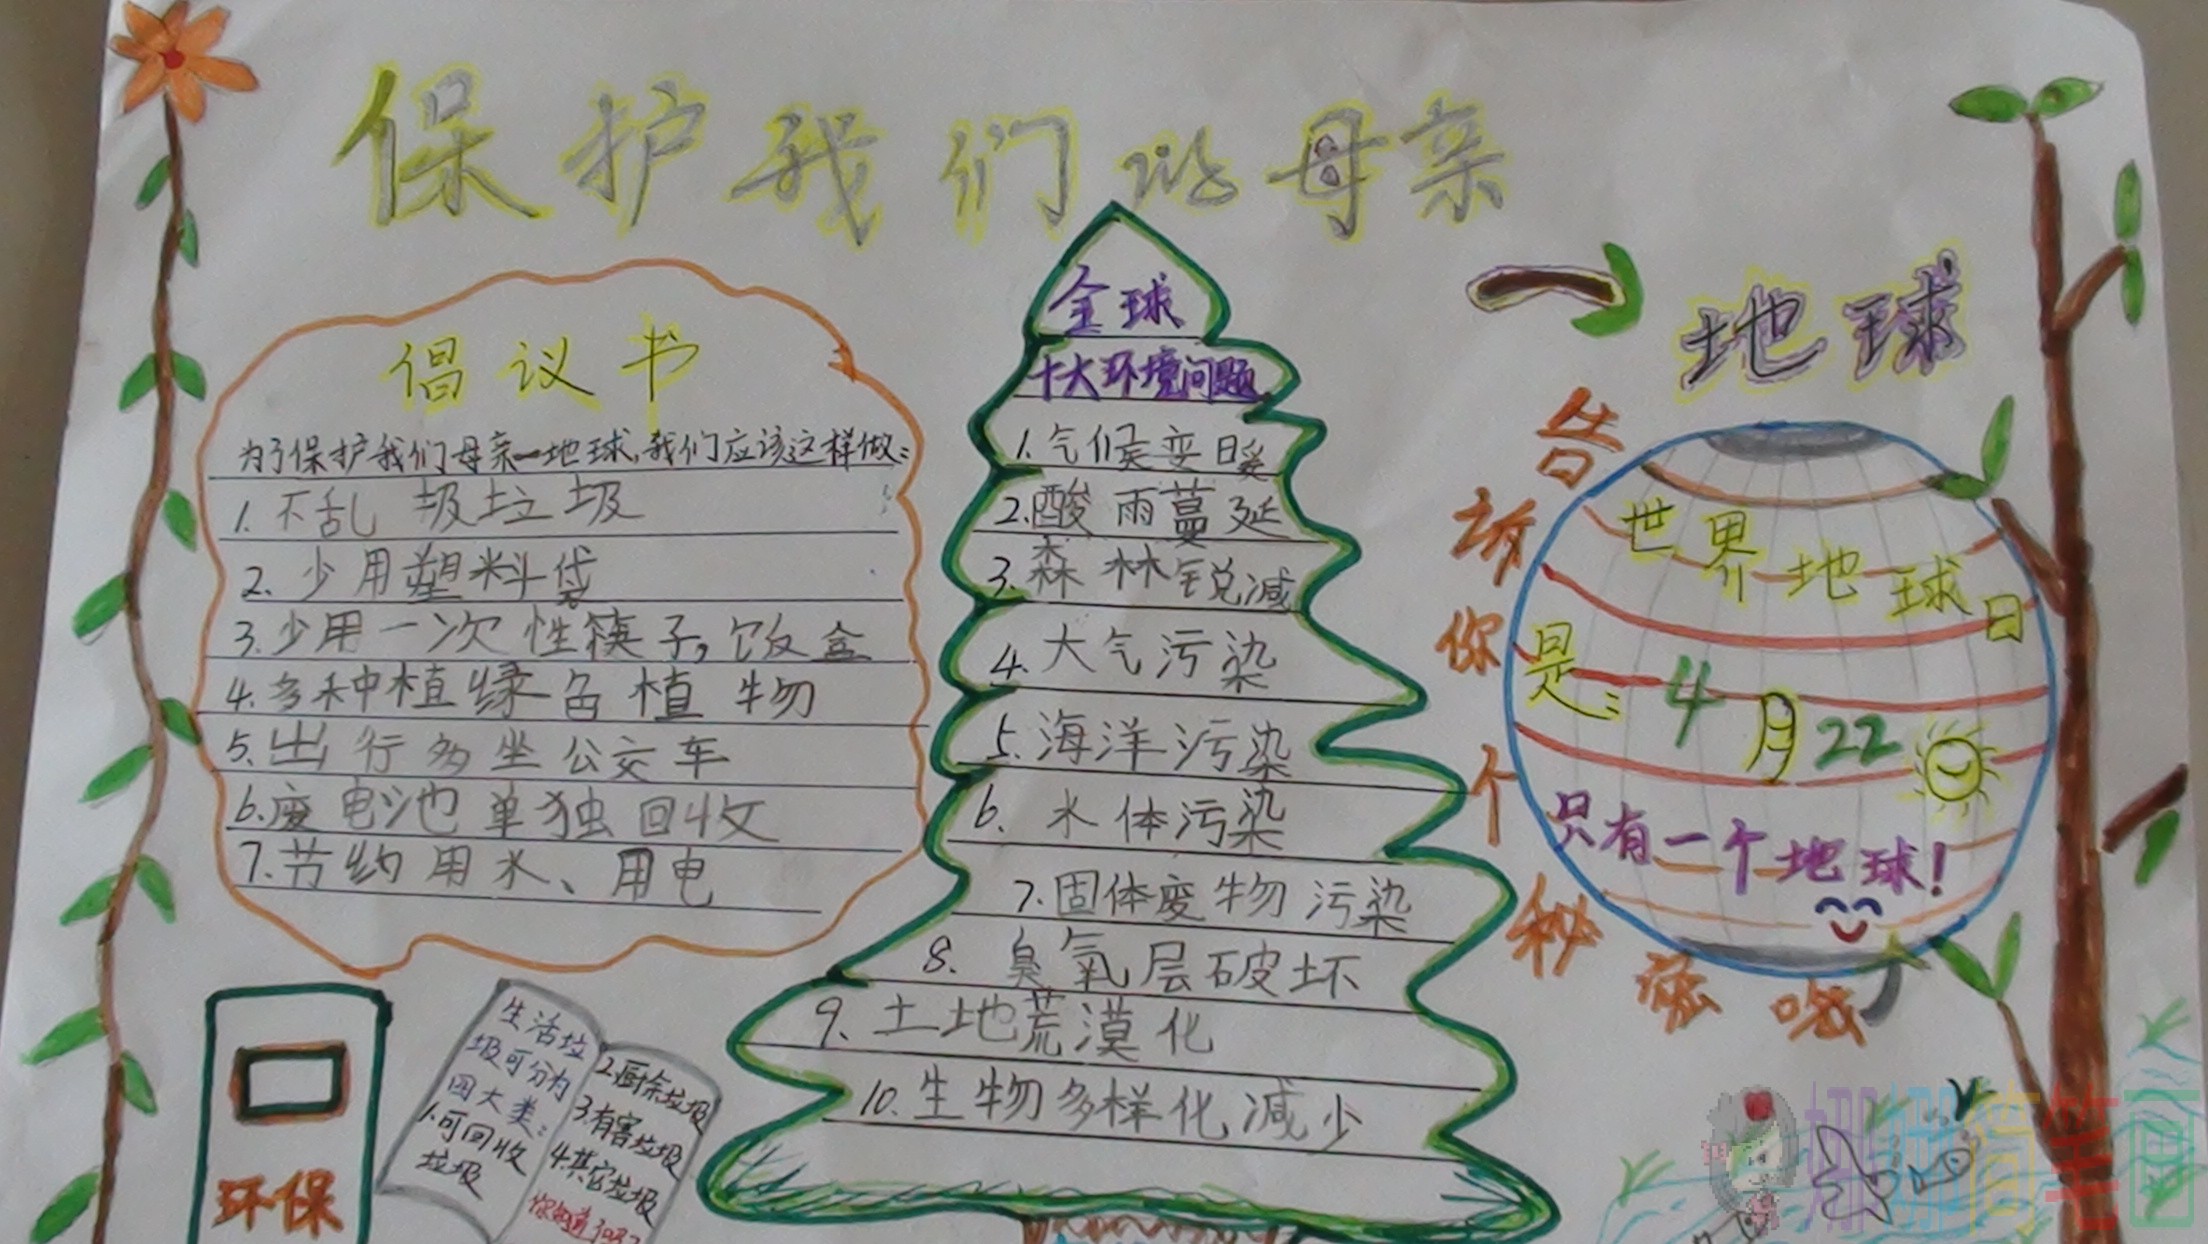 保护我们的母亲
地球
倡议书
为了保护我们母亲一地球,我们应该这样做:
1.不乱圾垃圾
2.少用塑料袋
3.少用一次性筷子,饭盒
4.多种植绿色植物
5.出行多坐公交车
6.废电池单独回收
7.节约用水、用电
全球
十大环境问题
1.气候变暖
2.酸雨蔓延
3.森林锐减
4.大气污染
5.海洋污染
6.水体污染
7.固体废物污染
8.臭氧层破坏
9.土地荒漠化
10.生物多样化减少
告诉你个秘密哦
世界地球日
是:4月22
只有一个地球!
环保
生活垃
圾可分为
四大类:
1.可回收
垃圾
2.厨余垃圾
3.有害垃圾
4.其它垃圾
你知道了吗?
娜娜简笔画